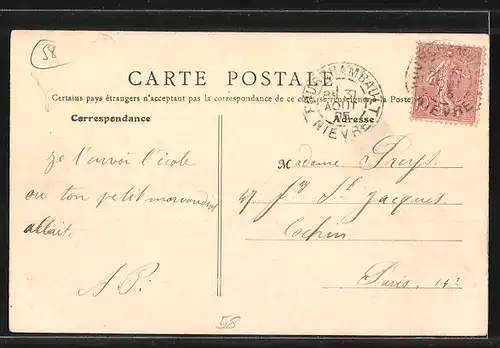 58
CARTE POSTALE
Certains pays étrangers n'acceptant pas la correspondance de ce côté, se renseigner à la Poste
Correspondance
Adresse
31
AOUT
05
NIEVRE
NIEVRE
je t'envoi l'école
ou ton petit morvandiau
allait.
A P.
Madame Preys
47 Fg St Jacques
Cochin
Paris. 14e
58